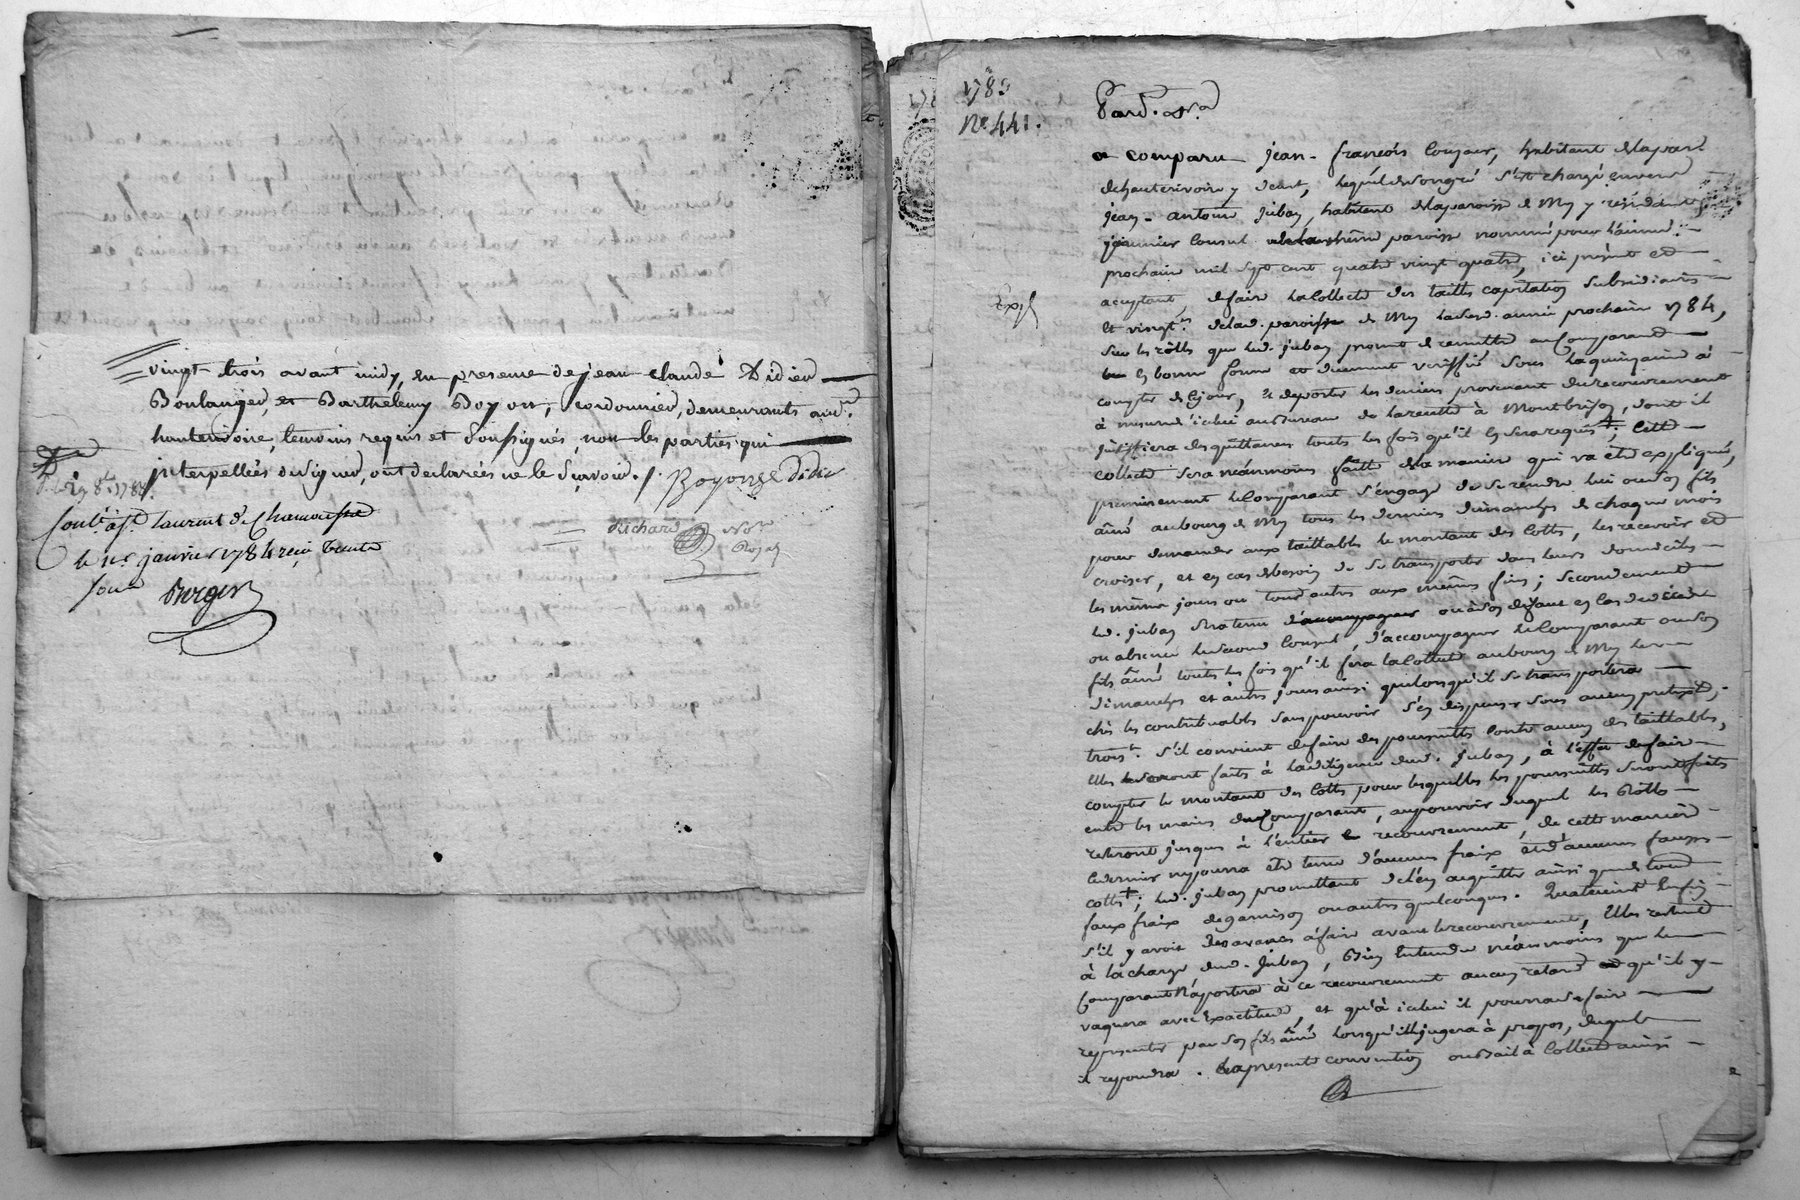 vingt trois avant midy, en presence de jean claude Didier
Boulanger, et Barthelemy Boyon, cordonnier, demeurants aud.
hauterivoire, temoins requis et soussignés, non les parties qui
interpellées de signer, ont declarées ne le sçavoir. /. Boyon Didier
Richard Not.re Royal
Cont.lé à S.t Laurent de Chamousset
le 1er janvier 1784 reçu trente
sous
Berger
1783
N.o 441.
Pard. N.re
a comparu jean-françois Coujour, habitant de la par.e
de hauterivoire y etant, lequel de son gré s'est chargé envers
jean-antoine juban, habitant de la paroisse de Mey y residant
premier Consul de la même paroisse nommé pour l'année
prochaine mil sept cent quatre vingt quatre, ici present et
acceptant de faire la collecte des tailles capitation subsidiaires
Exp.é
et vingt.es de lad. paroisse de Mey lad. annee prochaine 1784,
sur les rôlles que led. juban promet de remettre au Comparant
en bonne forme et duement veriffiés sous la quinzaine à
compter de ce jour, et de porter les deniers provenant du recouvrement
à mesure d'icelui au Bureau de la recette à Montbrison, dont il
justiffiera des quittances toutes les fois qu'il en sera requis; cette
collecte sera néanmoins faitte de la maniere qui va être expliqué,
premierement le Comparant s'engage de se rendre lui ou son fils
âiné au bourg de Mey tous les derniers dimanches de chaque mois
pour demander aux taillables le montant des cottes, les recevoir et
croiser, et en cas de besoin de se transporter dans leurs domiciles
les mêmes jours ou tous autres aux mêmes fins; secondement
led. juban sera tenu ou à son defaut en cas de decès
ou absence le second Consul, d'accompagner le Comparant ou son
fils âiné toutes les fois qu'il fera la Collecte au bourg de Mey les
dimanches et autres jours ainsi que lorsqu'il se transportera
chès les contribuables sans pouvoir s'en dispenser sous aucun pretexte,
trois.t s'il convient de faire des poursuittes contre aucun des taillables,
elles seront faits à la diligence dud. juban, à l'effet de faire
compter le montant des cottes pour lesquelles les poursuittes seront faits
entre les mains du Comparant, au pouvoir duquel les Rôlles
resteront jusques à l'entier recouvrement, de cette maniere
ce dernier ne pourra être tenu d'aucuns fraix et d'aucunes fausses
cottes; led. juban promettant de l'en acquitter ainsi que de tous
faux fraix de garnison ou autres quelconques. Quatriement Enfin
s'il y avoit des avances à faire avant le recouvrement, Elles restent
à la charge dud. juban, Bien Entendu néanmoins que le
Comparant n'aportera à ce recouvrement aucun retard qu'il y
vaquera avec Exactitude, et qu'à icelui il pourra se faire
representer par son fils âiné lorsqu'il le jugera à propos, duquel
il repondra. La presente convention ou Bail à Collecte ainsi